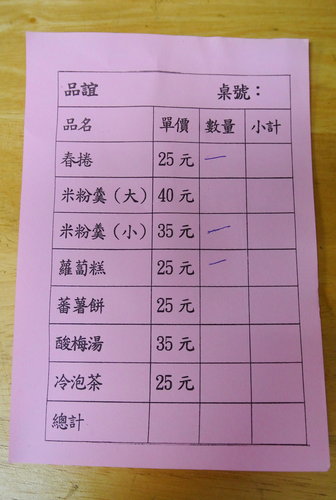 品誼 桌號：
品名 單價 數量 小計
春捲 25元 一
米粉羹（大） 40元
米粉羹（小） 35元 一
蘿蔔糕 25元 一
蕃薯餅 25元
酸梅湯 35元
冷泡茶 25元
總計